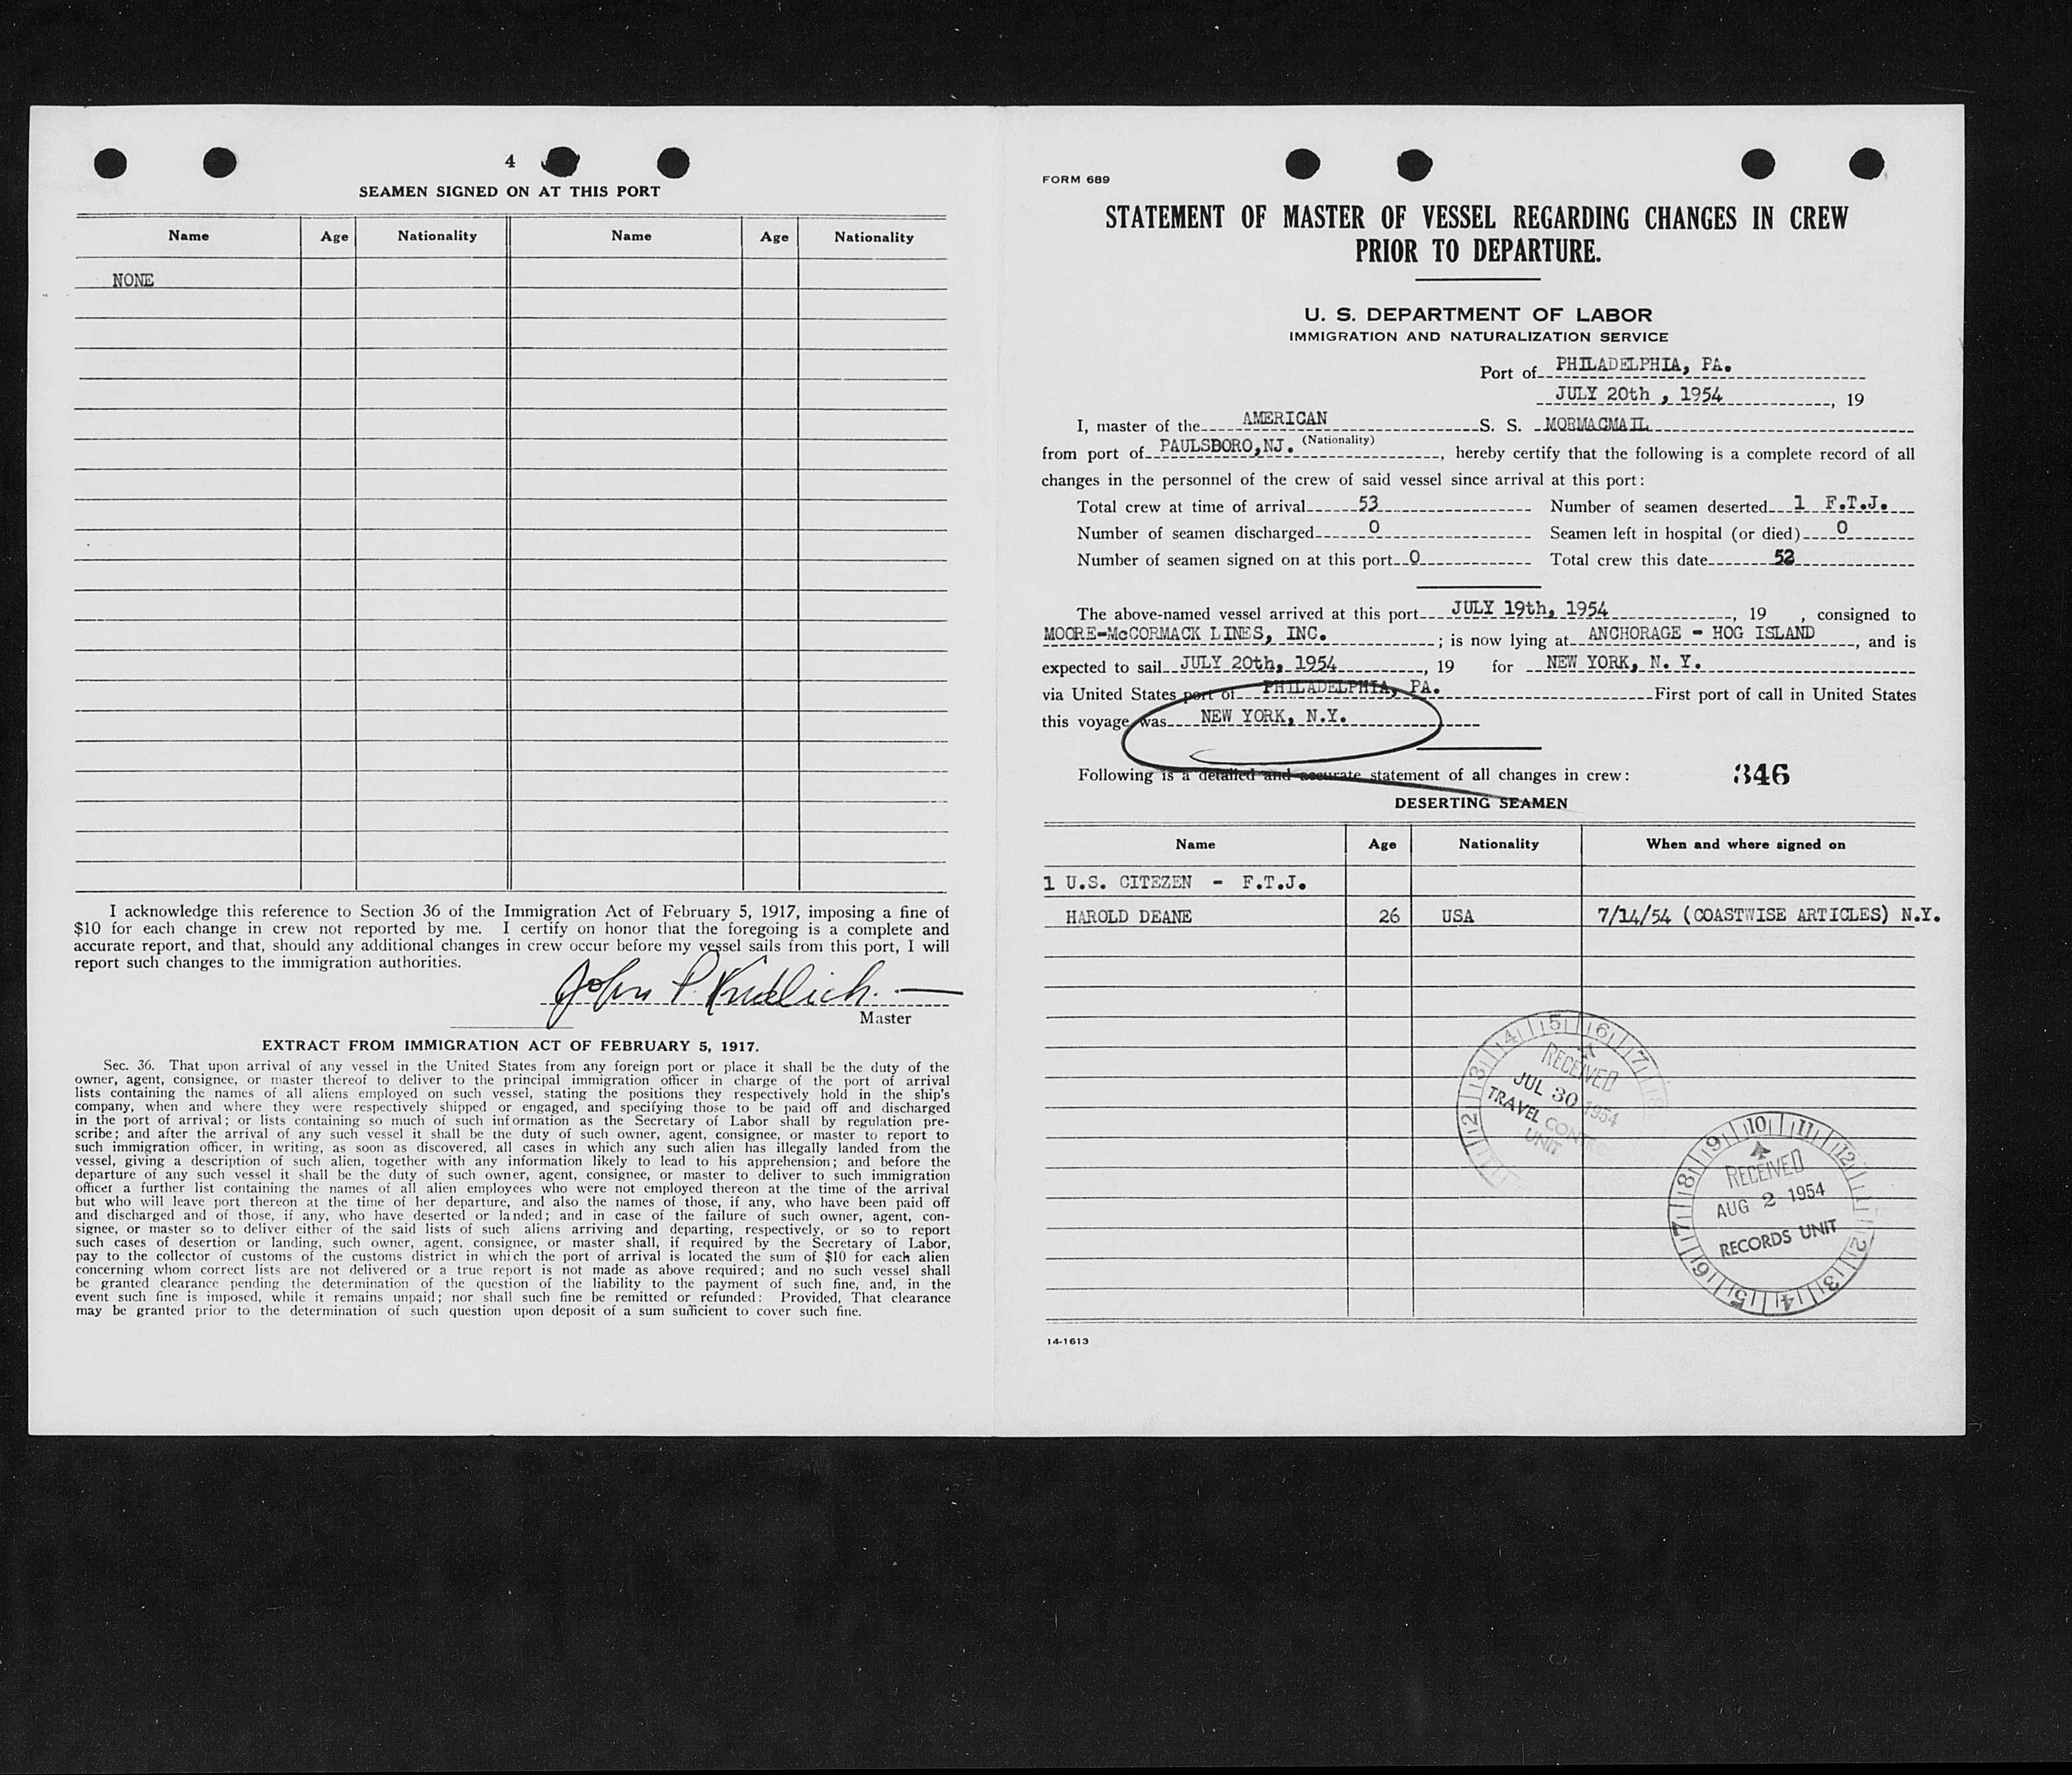 4
SEAMEN SIGNED ON AT THIS PORT
Name Age Nationality Name Age Nationality
NONE
I acknowledge this reference to Section 36 of the Immigration Act of February 5, 1917, imposing a fine of
$10 for each change in crew not reported by me. I certify on honor that the foregoing is a complete and
accurate report, and that, should any additional changes in crew occur before my vessel sails from this port, I will
report such changes to the immigration authorities.
John P.
Master
EXTRACT FROM IMMIGRATION ACT OF FEBRUARY 5, 1917.
Sec. 36. That upon arrival of any vessel in the United States from any foreign port or place it shall be the duty of the
owner, agent, consignee, or master thereof to deliver to the principal immigration officer in charge of the port of arrival
lists containing the names of all aliens employed on such vessel, stating the positions they respectively hold in the ship's
company, when and where they were respectively shipped or engaged, and specifying those to be paid off and discharged
in the port of arrival; or lists containing so much of such information as the Secretary of Labor shall by regulation pre-
scribe; and after the arrival of any such vessel it shall be the duty of such owner, agent, consignee, or master to report to
such immigration officer, in writing, as soon as discovered, all cases in which any such alien has illegally landed from the
vessel, giving a description of such alien, together with any information likely to lead to his apprehension; and before the
departure of any such vessel it shall be the duty of such owner, agent, consignee, or master to deliver to such immigration
officer a further list containing the names of all alien employees who were not employed thereon at the time of the arrival
but who will leave port thereon at the time of her departure, and also the names of those, if any, who have been paid off
and discharged and of those, if any, who have deserted or landed; and in case of the failure of such owner, agent, con-
signee, or master so to deliver either of the said lists of such aliens arriving and departing, respectively, or so to report
such cases of desertion or landing, such owner, agent, consignee, or master shall, if required by the Secretary of Labor,
pay to the collector of customs of the customs district in which the port of arrival is located the sum of $10 for each alien
concerning whom correct lists are not delivered or a true report is not made as above required; and no such vessel shall
be granted clearance pending the determination of the question of the liability to the payment of such fine, and, in the
event such fine is imposed, while it remains unpaid; nor shall such fine be remitted or refunded: Provided, That clearance
may be granted prior to the determination of such question upon deposit of a sum sufficient to cover such fine.
FORM 689
STATEMENT OF MASTER OF VESSEL REGARDING CHANGES IN CREW
PRIOR TO DEPARTURE.
U. S. DEPARTMENT OF LABOR
IMMIGRATION AND NATURALIZATION SERVICE
Port of PHILADELPHIA, PA.
JULY 20th , 1954 , 19
I, master of the AMERICAN S. S. MORMACMAIL
(Nationality)
from port of PAULSBORO,NJ. , hereby certify that the following is a complete record of all
changes in the personnel of the crew of said vessel since arrival at this port:
Total crew at time of arrival 53 Number of seamen deserted 1 F.T.J.
Number of seamen discharged 0 Seamen left in hospital (or died) 0
Number of seamen signed on at this port 0 Total crew this date 52
The above-named vessel arrived at this port JULY 19th, 1954 , 19 , consigned to
MOORE-McCORMACK LINES, INC. ; is now lying at ANCHORAGE - HOG ISLAND , and is
expected to sail JULY 20th, 1954 , 19 for NEW YORK, N. Y.
via United States port of PHILADELPHIA, PA. First port of call in United States
this voyage was NEW YORK, N.Y.
Following is a detailed and accurate statement of all changes in crew:
346
DESERTING SEAMEN
Name Age Nationality When and where signed on
1 U.S. CITEZEN - F.T.J.
HAROLD DEANE 26 USA 7/14/54 (COASTWISE ARTICLES) N.Y.
RECEIVED
JUL 30 1954
TRAVEL CONTROL
UNIT
RECEIVED
AUG 2 1954
RECORDS UNIT
14-1613